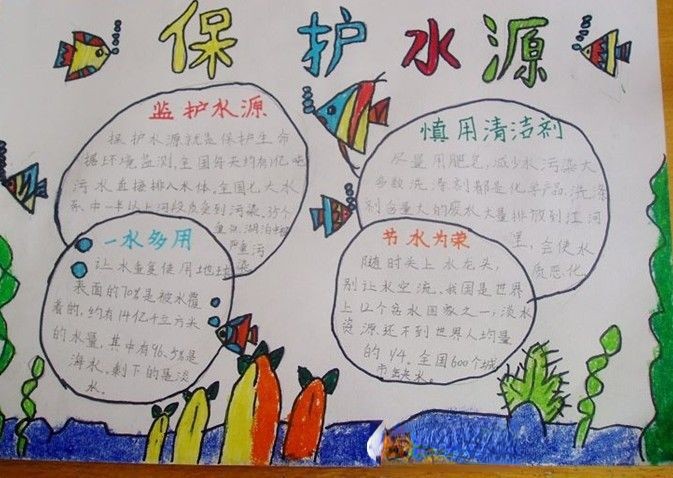 保护水源
监护水源
保护水源就是保护生命
据环境监测,全国每天约有1亿吨
污水直接排入水体。全国七大水
系中一半以上河段水质受到污染。35个
重点湖泊中
严重污
慎用清洁剂
尽量用肥皂,减少水污染大
多数洗涤剂都是化学产品,洗涤
剂含量大的废水大量排放到江河
里,会使水
质恶化
一水多用
让水重复使用地球
表面的70%是被水覆
着的,约有14亿千立方米
的水量,其中有96.5%是
海水。剩下的虽淡
水。
节水为荣
随时关上水龙头,
别让水空流。我国是世界
上12个贫水国家之一,淡水
资源还不到世界人均量
的1/4。全国600个城
市缺水。